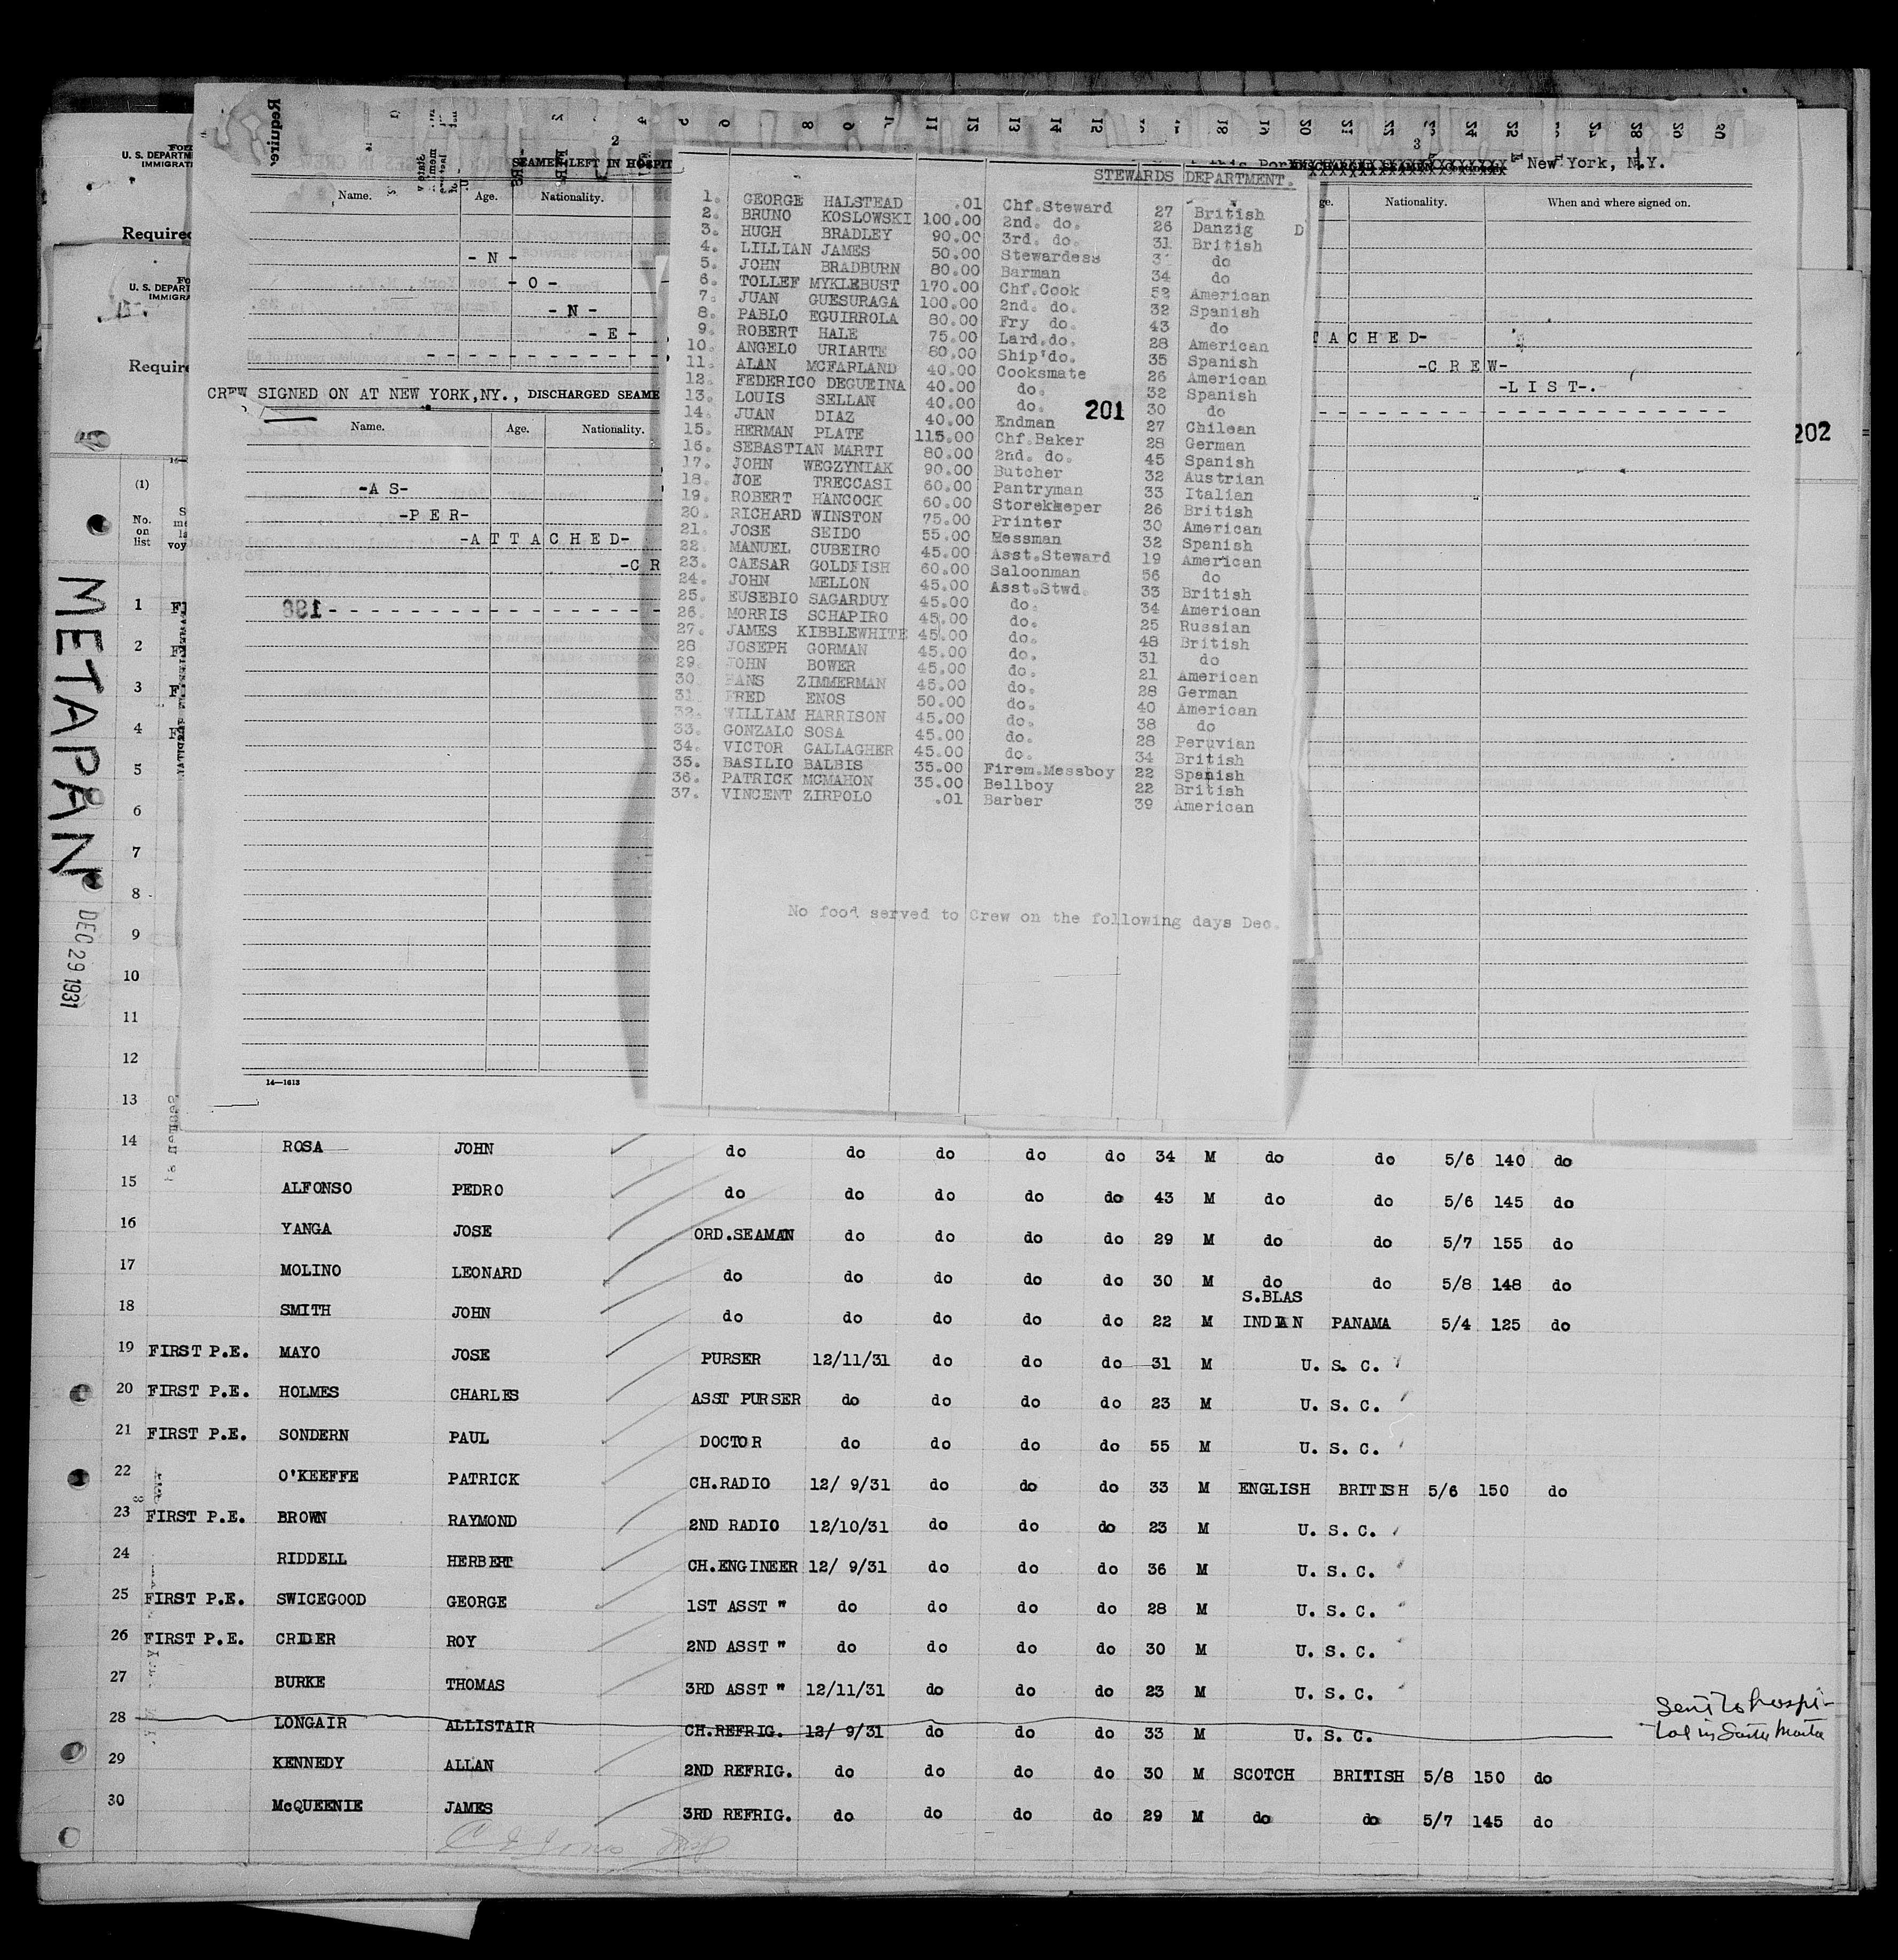 U. S. DEPARTM
IMMIGRATI
Require
SEAMEN LEFT IN HOSPIT
New York, N.Y.
Name. Age. Nationality.
Nationality. When and where signed on.
Required
- N -
- O -
- N -
- E -
U. S. DEPART
IMMIGRA
Require
CREW SIGNED ON AT NEW YORK,NY., DISCHARGED SEAME
Name. Age. Nationality.
-A S-
-P E R-
-A T T A C H E D-
-C R
14—1613
STEWARDS DEPARTMENT.
1. GEORGE HALSTEAD .01 Chf.Steward 27 British
2. BRUNO KOSLOWSKI 100.00 2nd. do. 26 Danzig D
3. HUGH BRADLEY 90.00 3rd. do. 31 British
4. LILLIAN JAMES 50.00 Stewardess do
5. JOHN BRADBURN 80.00 Barman 34 do
6. TOLLEF MYKLEBUST 170.00 Chf.Cook 52 American
7. JUAN GUESURAGA 100.00 2nd. do. 32 Spanish
8. PABLO EGUIRROLA 80.00 Fry do. 43 do
9. ROBERT HALE 75.00 Lard.do. 28 American
10. ANGELO URIARTE 80.00 Ship'do. 35 Spanish
11. ALAN MCFARLAND 40.00 Cooksmate 26 American
12. FEDERICO DEGUEINA 40.00 do. 32 Spanish
13. LOUIS SELLAN 40.00 do. 30 do
14. JUAN DIAZ 40.00 Endman 27 Chilean
15. HERMAN PLATE 115.00 Chf.Baker 28 German
16. SEBASTIAN MARTI 80.00 2nd. do. 45 Spanish
17. JOHN WEGZYNIAK 90.00 Butcher 32 Austrian
18. JOE TRECCASI 60.00 Pantryman 33 Italian
19. ROBERT HANCOCK 60.00 Storekkeeper 26 British
20. RICHARD WINSTON 75.00 Printer 30 American
21. JOSE SEIDO 55.00 Messman 32 Spanish
22. MANUEL CUBEIRO 45.00 Asst.Steward 19 American
23. CAESAR GOLDFISH 60.00 Saloonman 56 do
24. JOHN MELLON 45.00 Asst.Stwd. 33 British
25. EUSEBIO SAGARDUY 45.00 do. 34 American
26. MORRIS SCHAPIRO 45.00 do. 25 Russian
27. JAMES KIBBLEWHITE 45.00 do. 48 British
28 JOSEPH GORMAN 45.00 do. 31 do
29. JOHN BOWER 45.00 do. 21 American
30. HANS ZIMMERMAN 45.00 do. 28 German
31 FRED ENOS 50.00 do. 40 American
32. WILLIAM HARRISON 45.00 do. 38 do
33. GONZALO SOSA 45.00 do. 28 Peruvian
34. VICTOR GALLAGHER 45.00 do. 34 British
35. BASILIO BALBIS 35.00 Firem.Messboy 22 Spanish
36. PATRICK MCMAHON 35.00 Bellboy 22 British
37. VINCENT ZIRPOLO .01 Barber 39 American
201
No food served to Crew on the following days Dec.
TACHED-
-C R E W-
-L I S T-.
202
METAPAN
DEC 29 1931
(1)
No. on list
1
2
3
4
5
6
7
8
9
10
11
12
13
14 ROSA JOHN do do do do do 34 M do do 5/6 140 do
15 ALFONSO PEDRO do do do do do 43 M do do 5/6 145 do
16 YANGA JOSE ORD.SEAMAN do do do do 29 M do do 5/7 155 do
17 MOLINO LEONARD do do do do do 30 M do do 5/8 148 do
18 SMITH JOHN do do do do do 22 M S.BLAS INDIAN PANAMA 5/4 125 do
19 FIRST P.E. MAYO JOSE PURSER 12/11/31 do do do 31 M U. S. C.
20 FIRST P.E. HOLMES CHARLES ASST PURSER do do do do 23 M U. S. C.
21 FIRST P.E. SONDERN PAUL DOCTOR do do do do 55 M U. S. C.
22 O'KEEFFE PATRICK CH.RADIO 12/ 9/31 do do do 33 M ENGLISH BRITISH 5/6 150 do
23 FIRST P.E. BROWN RAYMOND 2ND RADIO 12/10/31 do do do 23 M U. S. C.
24 RIDDELL HERBERT CH.ENGINEER 12/ 9/31 do do do 36 M U. S. C.
25 FIRST P.E. SWICEGOOD GEORGE 1ST ASST " do do do do 28 M U. S. C.
26 FIRST P.E. CRIDER ROY 2ND ASST " do do do do 30 M U. S. C.
27 BURKE THOMAS 3RD ASST " 12/11/31 do do do 23 M U. S. C.
28 LONGAIR ALLISTAIR CH.REFRIG. 12/ 9/31 do do do 33 M U. S. C. Sent to hospi-
tal in Santa Marta
29 KENNEDY ALLAN 2ND REFRIG. do do do do 30 M SCOTCH BRITISH 5/8 150 do
30 McQUEENIE JAMES 3RD REFRIG. do do do do 29 M do do 5/7 145 do